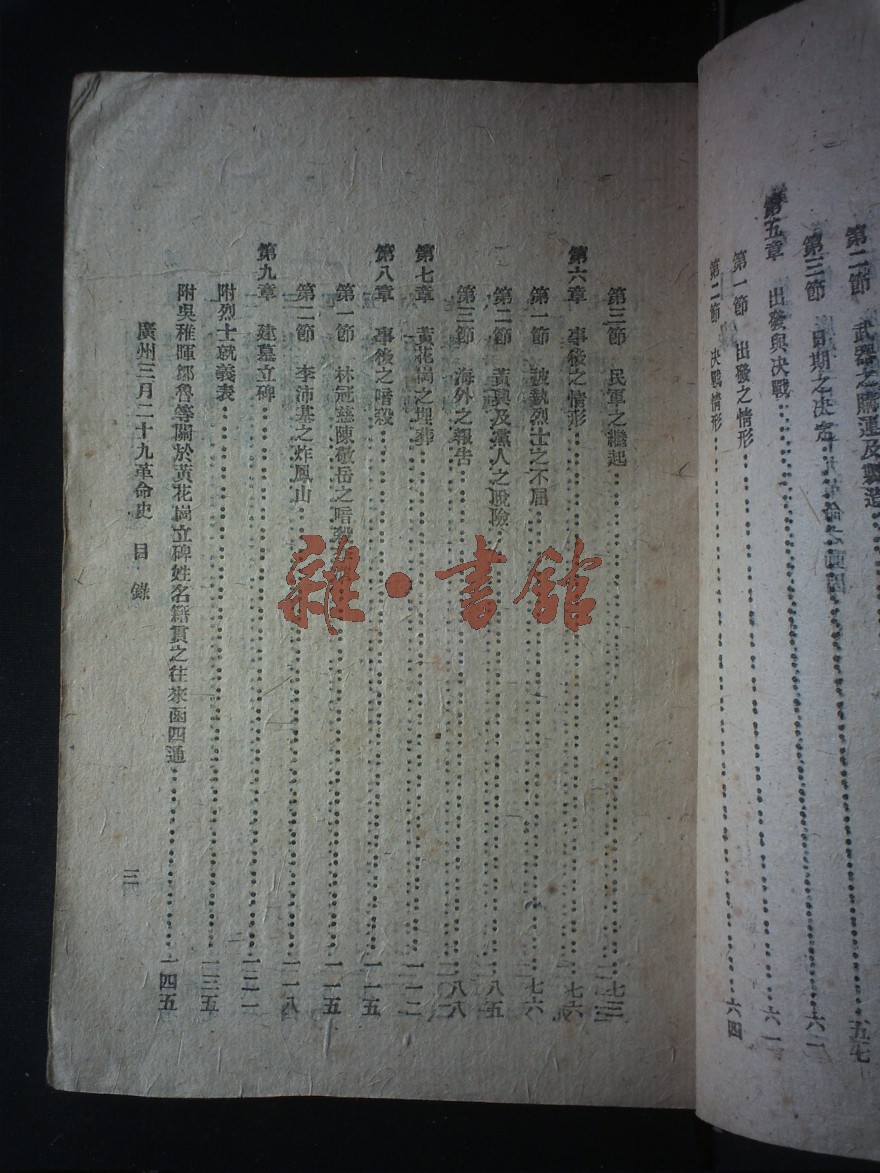 第二節　武器之購運及製造……五七
第三節　日期之決定……六二
第五章　出發與決戰……六一
第一節　出發之情形
第二節　決戰情形……六四
第三節　民軍之繼起……七三
第六章　事後之情形……七六
第一節　被執烈士之不屈……七六
第二節　黃興及黨人之脫險……八五
第三節　海外之報告……八八
第七章　黃花崗之埋葬……一一二
第八章　事後之暗殺……一一五
第一節　林冠慈陳敬岳之暗殺……一一五
第二節　李沛基之炸鳳山……一一八
第九章　建墓立碑……一二一
附烈士就義表……一三五
附吳稚暉鄒魯等關於黃花崗立碑姓名籍貫之往來函四通……一四五
廣州三月二十九革命史　目錄
三
雜·書館